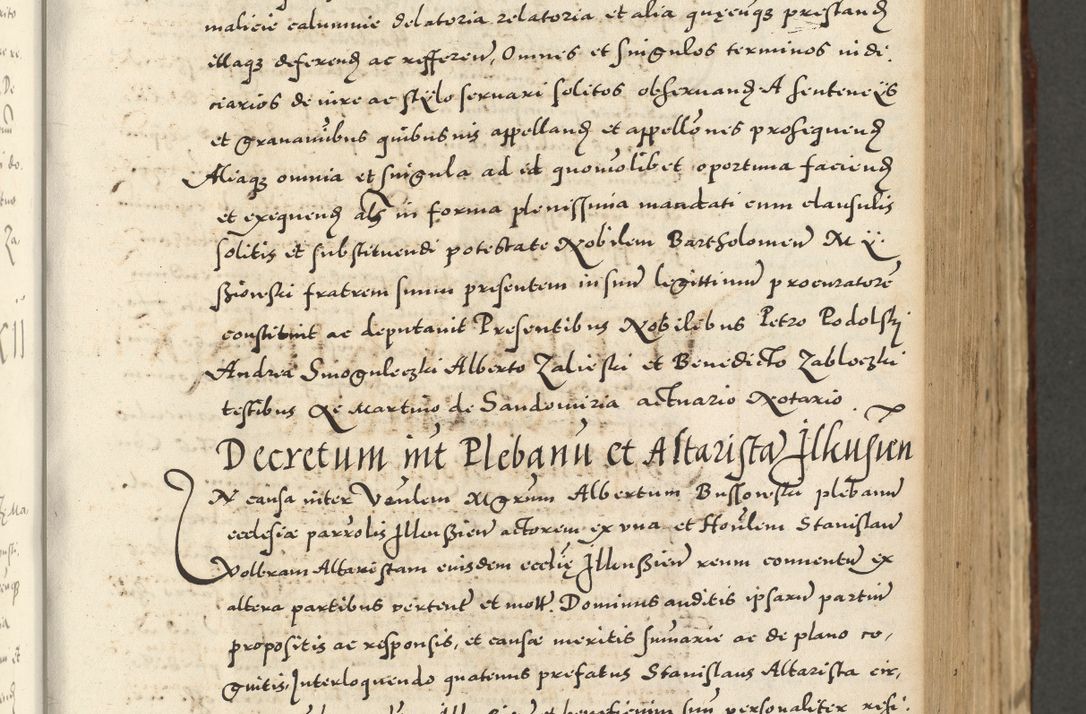 malicie calumnie delatoria relatoria et alia quęcuqꝫ prestand
illaqꝫ deferend ac refferen, Omnes et singulos terminos iude,
ciarios de iure ac stylo seruari solitos obseruand A sentencÿs
et grauaibus quibusuis appelland et appellones prosequend
Aliaqꝫ omnia et singula ad id quomolibet oportuna faciend
et exequend als in forma plenissima mandati cum clausulis
solitis et substituendi potestate Nobilem Bartholomeu
fratrem suum presentem in suu legittimu procuratore
constituit ac deputauit Presentibus Nobilebus Petro Podolski
Andrea Smoguleczki Alberto Zalieski et Benedicto Zabloczki
testibus Et Martino de Sandomiria actuario Notario
Decretum int Plebanu et Altarista Jlkusien
IN causa inter Venlem Mgrum Albertum Bussowski plebanu
ecclesiæ parrolis Jlkussien actorem ex vna et Honlem Stanislau
Wolbram Altaristam eiusdem ecclię Jlkussien reum conuentu ex
altera partibus vertent et mott. Dominus auditis ipsaru partiu
propositis ac responsis, et causæ meritis sumarie ac de plano co,
gnitis, Interloquendo quatenus prefatus Stanislaus Altarista cir,
et beneficium suu personaliter resi,